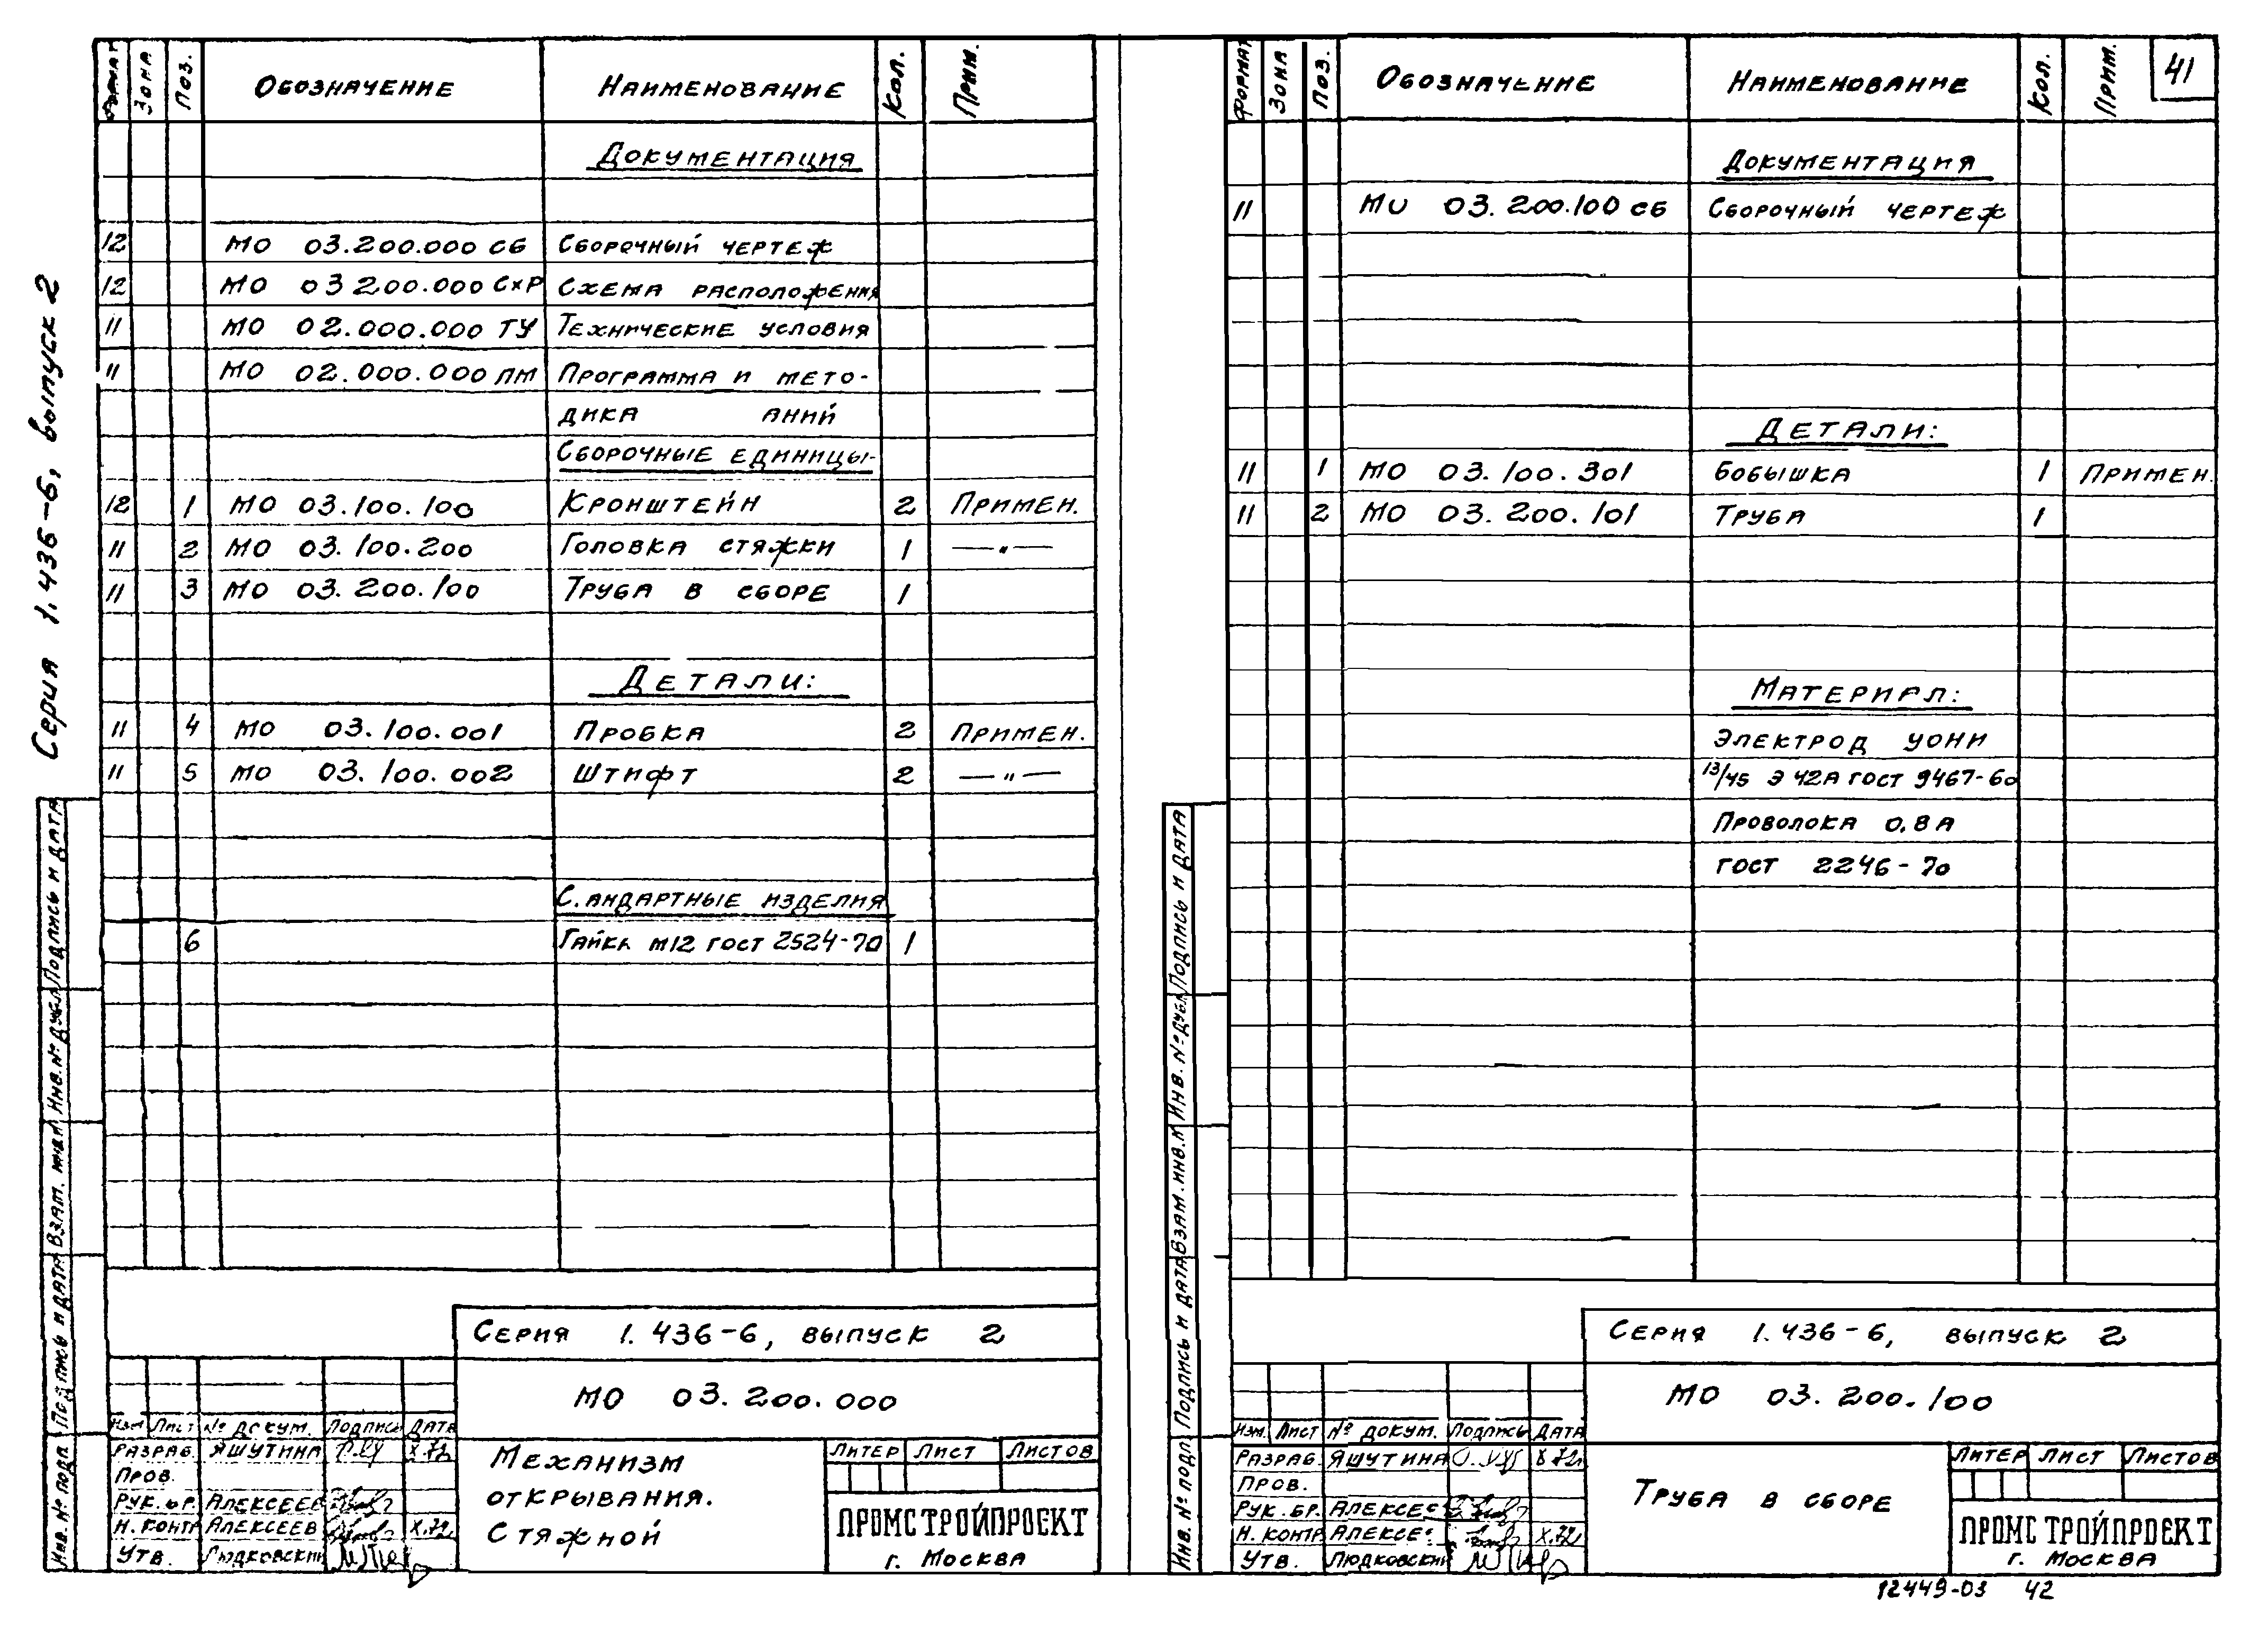 Серия 1.436-6, выпуск 2
Формат Зона Поз. Обозначение Наименование Кол. Прим.
Документация
12 МО 03.200.000 СБ Сборочный чертеж
12 МО 03 200.000 СхР Схема расположения
11 МО 02.000.000 ТУ Технические условия
11 МО 02.000.000 ПМ Программа и мето-
дика аний
Сборочные единицы
12 1 МО 03.100.100 Кронштейн 2 Примен.
11 2 МО 03.100.200 Головка стяжки 1 —"—
11 3 МО 03.200.100 Труба в сборе 1
Детали:
11 4 МО 03.100.001 Пробка 2 Примен.
11 5 МО 03.100.002 Штифт 2 —"—
С.андартные изделия
6 Гайка М12 ГОСТ 2524-70 1
Подпись и дата
Инв. № дубл
Взам. инв №
Подпись и дата
Инв. № подл
Серия 1.436-6, выпуск 2
МО 03.200.000
Изм Лист № докум. Подпись Дата
Разраб. Яшутина X.72
Пров.
Рук. бр. Алексеев
Н. контр Алексеев X.72
Утв. Людковский
Механизм
открывания.
Стяжной
Литер Лист Листов
ПРОМСТРОЙПРОЕКТ
г. Москва
41
Формат Зона Поз. Обозначение Наименование Кол. Прим.
Документация
11 МО 03.200.100 СБ Сборочный чертеж
Детали:
11 1 МО 03.100.301 Бобышка 1 Примен.
11 2 МО 03.200.101 Труба 1
Материал:
Электрод УОНИ
13/45 Э 42А ГОСТ 9467-60
Проволока 0,8А
ГОСТ 2246-70
Подпись и дата
Инв. № дубл
Взам. инв. №
Подпись и дата
Инв. № подл.
Серия 1.436-6, выпуск 2
МО 03.200.100
Изм. Лист № докум. Подпись Дата
Разраб. Яшутина X 72
Пров.
Рук. бр. Алексе
Н. контр Алексе X.72
Утв. Людковский
Труба в сборе
Литер Лист Листов
ПРОМСТРОЙПРОЕКТ
г. Москва
12449-03 42